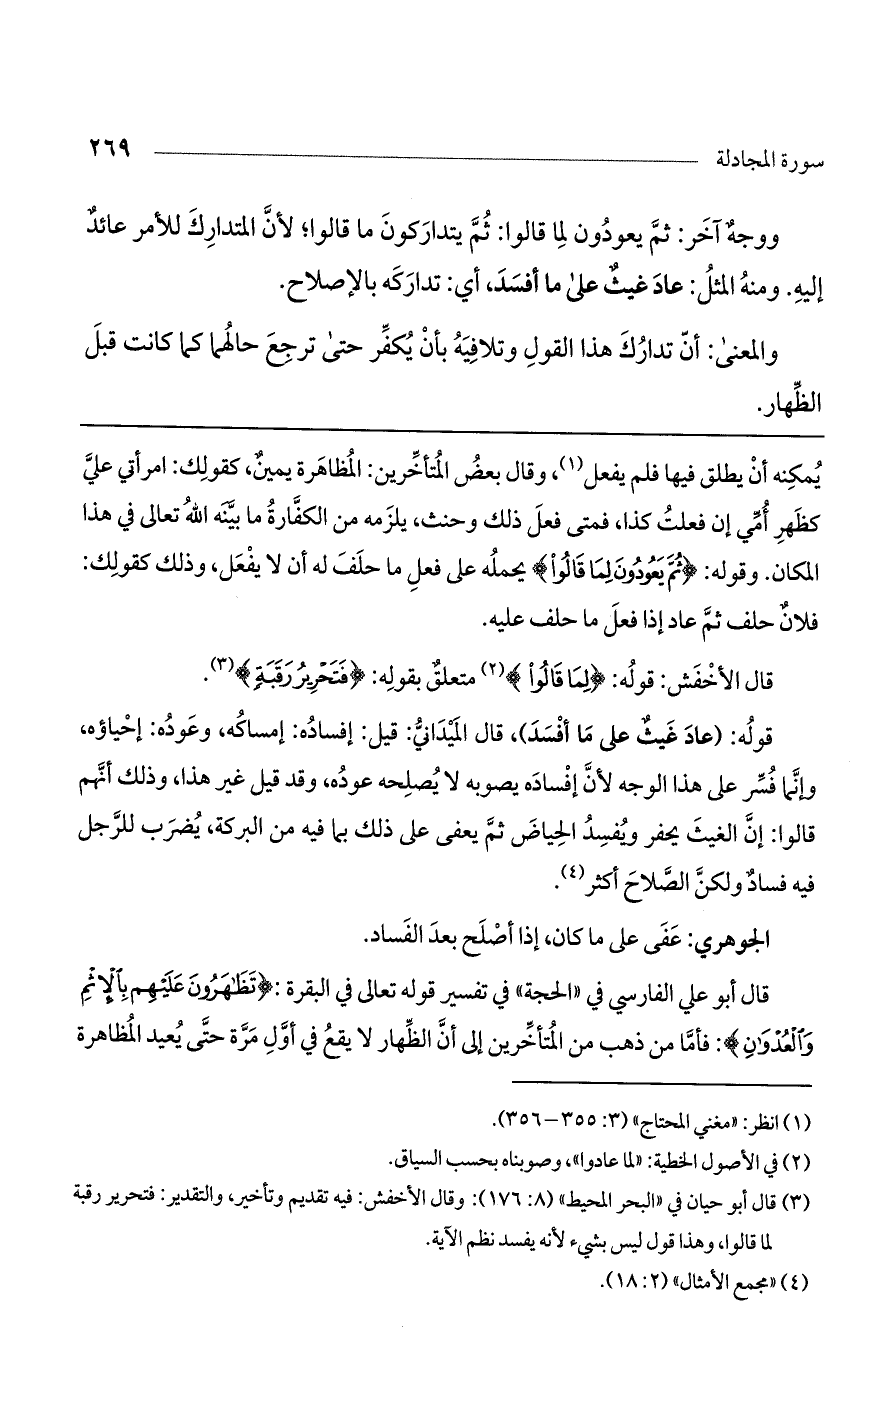 سورة المجادلة ٢٦٩
ووجهٌ آخَر: ثمَّ يعودُون لِما قالوا: ثُمَّ يتدارَكونَ ما قالوا؛ لأنَّ المتدارِكَ للأمر عائدٌ
إليهِ. ومنهُ المثلُ: عادَ غيثٌ علىٰ ما أفسَدَ، أي: تدارَكَه بالإصلاح.
والمعنىٰ: أنّ تدارُكَ هذا القولِ وتلافِيَهُ بأنْ يُكفِّر حتىٰ ترجِعَ حالُهما كما كانت قبلَ
الظِّهار.
يُمكِنه أنْ يطلق فيها فلم يفعل(١)، وقال بعضُ المُتأخِّرين: المُظاهَرة يمينٌ، كقولِك: امرأتي عليَّ
كظَهرِ أُمِّي إن فعلتُ كذا، فمتى فعلَ ذلك وحنث، يلزَمه من الكفَّارةُ ما بيَّنَه اللهُ تعالى في هذا
المكان. وقوله: ﴿ثُمَّ يَعُودُونَ لِمَا قَالُواْ﴾ يحملُه على فعلِ ما حلَفَ له أن لا يفْعَل، وذلك كقولِك:
فلانٌ حلف ثمَّ عاد إذا فعلَ ما حلف عليه.
قال الأخْفَش: قولُه: ﴿لِمَا قَالُواْ﴾(٢) متعلقٌ بقولِه: ﴿فَتَحْرِيرُ رَقَبَةٍ﴾(٣).
قولُه: (عادَ غَيثٌ على مَا أفْسَدَ)، قال المَيْدَانيُّ: قيل: إفسادُه: إمساكُه، وعَودُه: إحْياؤه،
وإنَّما فُسِّر على هذا الوجه لأنَّ إفْسادَه يصوبه لا يُصلِحه عودُه، وقد قيل غير هذا، وذلك أنَّهم
قالوا: إنَّ الغيثَ يحفر ويُفسِدُ الحِياضَ ثمَّ يعفى على ذلك بما فيه من البركة، يُضرَب للرَّجل
فيه فسادٌ ولكنَّ الصَّلاحَ أكثر(٤).
الجوهري: عَفَى على ما كان، إذا أصْلَح بعدَ الفَساد.
قال أبو علي الفارسي في «الحجة» في تفسير قوله تعالى في البقرة :﴿تَظَٰهَرُونَ عَلَيْهِم بِٱلْإِثْمِ
وَٱلْعُدْوَٰنِ﴾: فأمَّا من ذهب من المُتأخِّرين إلى أنَّ الظِّهار لا يقعُ في أوَّلِ مَرَّة حتَّى يُعيد المُظاهرة
(١) انظر: «مغني المحتاج» (٣: ٣٥٥–٣٥٦).
(٢) في الأصول الخطية: «لما عادوا»، وصوبناه بحسب السياق.
(٣) قال أبو حيان في «البحر المحيط» (٨: ١٧٦): وقال الأخفش: فيه تقديم وتأخير، والتقدير: فتحرير رقبة
لما قالوا، وهذا قول ليس بشيء لأنه يفسد نظم الآية.
(٤) «مجمع الأمثال» (٢: ١٨).